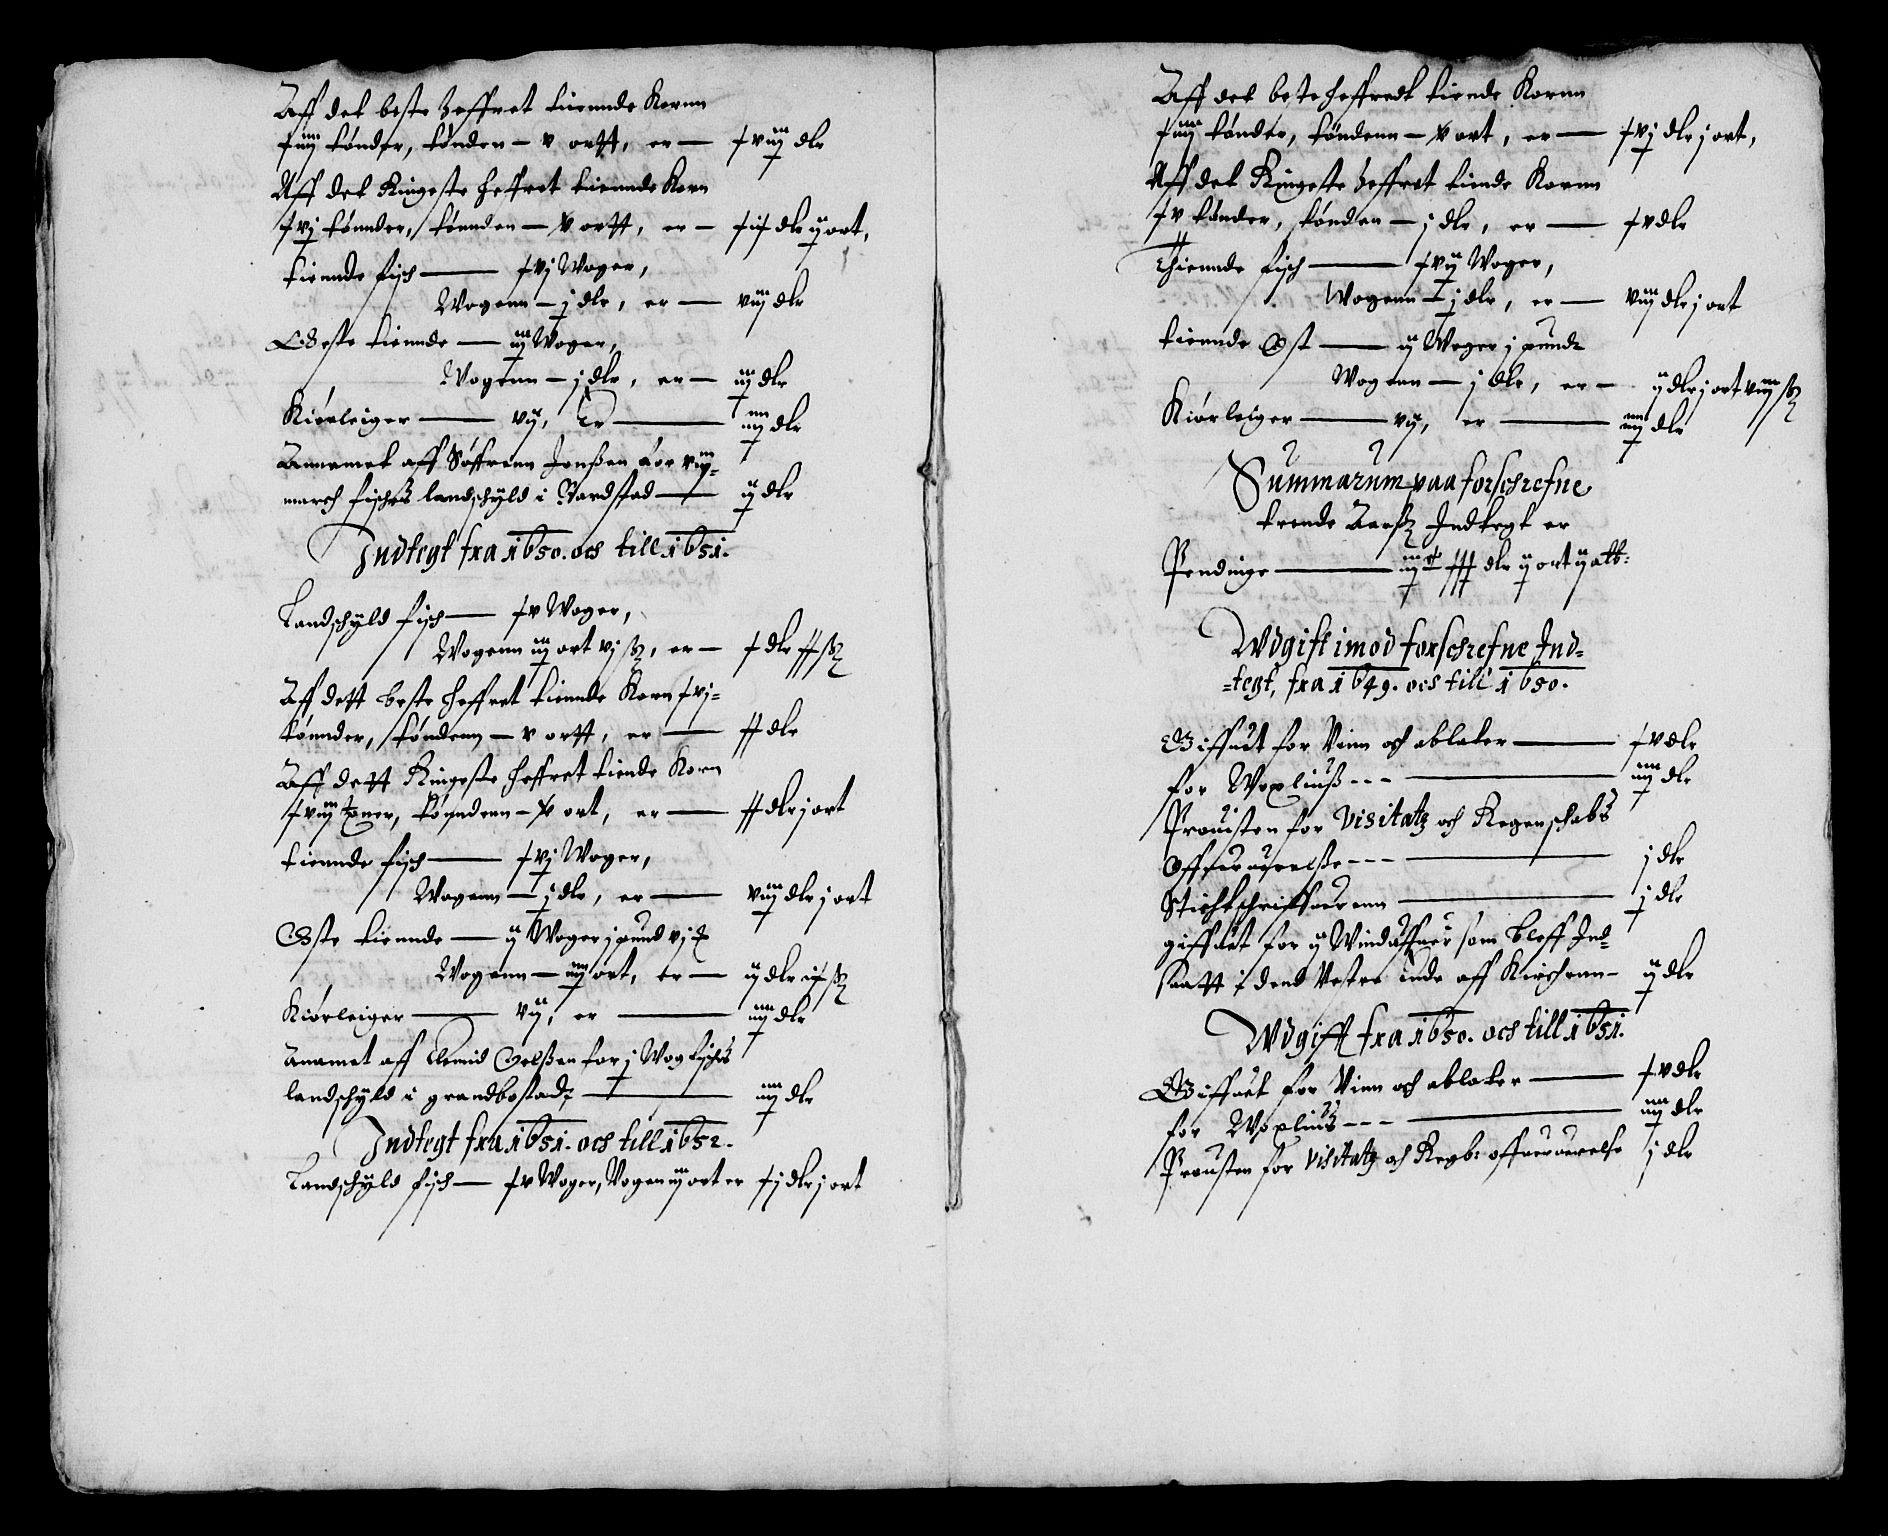 Aff det beste Heffret tiennde Kornn
xiiij tønder, tønden — v ortt, er — xviij dlr
Aff det Ringeste Heffret tiennde Korn
xvj tønnder, tønnden — ortt, er — dlr ij ort,
tiennde fisch — xvj Woger,
Wogenn — j dlr, er — viij dlr
Oeste tiennde — iij Woger,
Wogenn — j dlr, er — iij dlr
Kiørleiger — vij, Er — iiij dlr
Annamet aff Søffrenn Jonßen for viij-
march fisches landschyld i Nardstad — ij dlr
Indtegt fra 1650. och till 1651.
Landschyld fisch — xv Woger,
Wogenn iij ort vj ß, er — x dlr xx ß
Aff dett beste Heffret tiennde Korn xvj-
tønnder, tøndenn — v ortt, er — xx dlr
Aff dett Ringeste Heffret tiende Korn
xviij tøner, tønndenn — ort, er — xx dlr j ort
tiennde fisch — xvj Woger,
Wogenn — j dlr, er — viij dlr j ort
Oste tiennde — ij Woger j pund vj
Wogenn — iiij ort, er — ij dlr ß
Kiørleiger — vij, er — iiij dlr
Anamet aff Oelßen for j Wog fisches
landschyld i grandbostad, — iiij dlr
Indtegt fra 1651. och till 1652.
Landschyld fisch — xv Woger, Vogen iij ort er xj dlr j ort
Aff det beste Heffredt tiende Kornn
xiij tønder, tøndenn — v ort, er — xvj dlr j ort,
Aff det Ringeste Heffret tiende Kornn
xv tønder, tønden — j dlr, er — xv dlr
Thiennde fisch — xvij Woger,
Wogenn — j dlr, er — viij dlr j ort
tiennde Ost — ij Woger j pundt
Wogenn — j dlr, er — ij dlr j ort viij ß
Kiørleiger — vij, er — iiij dlr
Summarum paa forschrefne
trende Aarß Indtegt er
Pendinge — xxx dlr ij ort ij alb:
Wdgift imod forschrefne Ind=
=tegt, fra 1649. och till 1650.
Giffuit for Viin och ablater — xv dlr
for Woxliuß --- — iiij dlr
Prouisten for Visitatz och Regenschabs
Offueruerelße --- — j dlr
Stichtschriffuerenn — j dlr
giffuet for ij Winduffuer som bleff Ind-
saatt i dend Vestre Ende aff Kirchenn — ij dlr
Wdgifft fra 1650. och till 1651.
Giffuet for Viin och ablater — xv dlr
for Woxliuß --- — iiij dlr
Prousten for Visitatz och Regb: offueruerelse j dlr